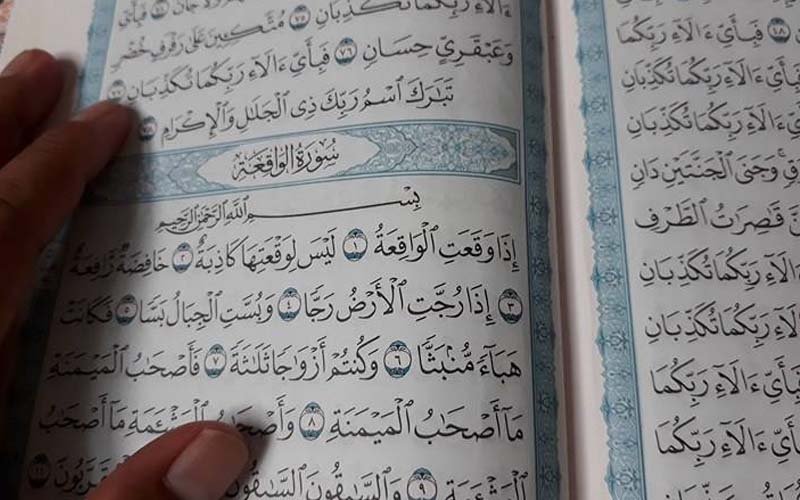 فَبِأَيِّ ءَالَآءِ رَبِّكُمَا
ءَالَآءِ رَبِّكُمَا تُكَذِّبَانِ
ءَالَآءِ رَبِّكُمَا تُكَذِّبَانِ
وَجَنَى ٱلْجَنَّتَيْنِ دَانٍ
قَٰصِرَٰتُ ٱلطَّرْفِ
ءَالَآءِ رَبِّكُمَا تُكَذِّبَانِ
ءَالَآءِ رَبِّكُمَا تُكَذِّبَانِ
فَبِأَيِّ ءَالَآءِ رَبِّكُمَا
ءَالَآءِ رَبِّكُمَا
ءَالَآءِ رَبِّكُمَا تُكَذِّبَانِ ٧٥ مُتَّكِـِٔينَ عَلَىٰ رَفْرَفٍ خُضْرٍ
وَعَبْقَرِيٍّ حِسَانٍ ٧٦ فَبِأَيِّ ءَالَآءِ رَبِّكُمَا تُكَذِّبَانِ ٧٧
تَبَٰرَكَ ٱسْمُ رَبِّكَ ذِى ٱلْجَلَٰلِ وَٱلْإِكْرَامِ ٧٨
سُورَةُ الوَاقِعَةِ
بِسْمِ ٱللَّهِ ٱلرَّحْمَٰنِ ٱلرَّحِيمِ
إِذَا وَقَعَتِ ٱلْوَاقِعَةُ ١ لَيْسَ لِوَقْعَتِهَا كَاذِبَةٌ ٢ خَافِضَةٌ رَّافِعَةٌ
٣ إِذَا رُجَّتِ ٱلْأَرْضُ رَجًّا ٤ وَبُسَّتِ ٱلْجِبَالُ بَسًّا ٥ فَكَانَتْ
هَبَآءً مُّنۢبَثًّا ٦ وَكُنتُمْ أَزْوَٰجًا ثَلَٰثَةً ٧ فَأَصْحَٰبُ ٱلْمَيْمَنَةِ
مَآ أَصْحَٰبُ ٱلْمَيْمَنَةِ ٨ وَأَصْحَٰبُ ٱلْمَشْـَٔمَةِ مَآ أَصْحَٰبُ
ٱلْمَشْـَٔمَةِ ٩ وَٱلسَّٰبِقُونَ ٱلسَّٰبِقُونَ ٱلْمُقَرَّبُونَ ١١